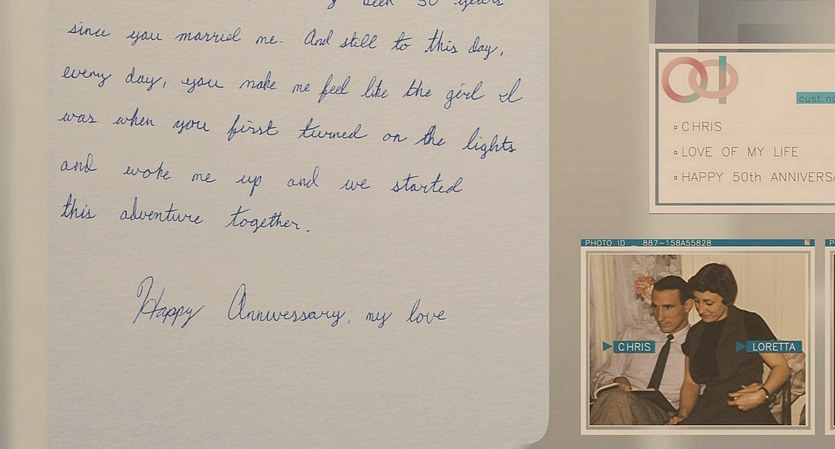 been 50 years
since you married me. And still to this day,
every day, you make me feel like the girl I
was when you first turned on the lights
and woke me up and we started
this adventure together.
Happy Anniversary, my love
cust. no
CHRIS
LOVE OF MY LIFE
HAPPY 50th ANNIVERSA
PHOTO ID _ 887-158A55828
CHRIS
LORETTA